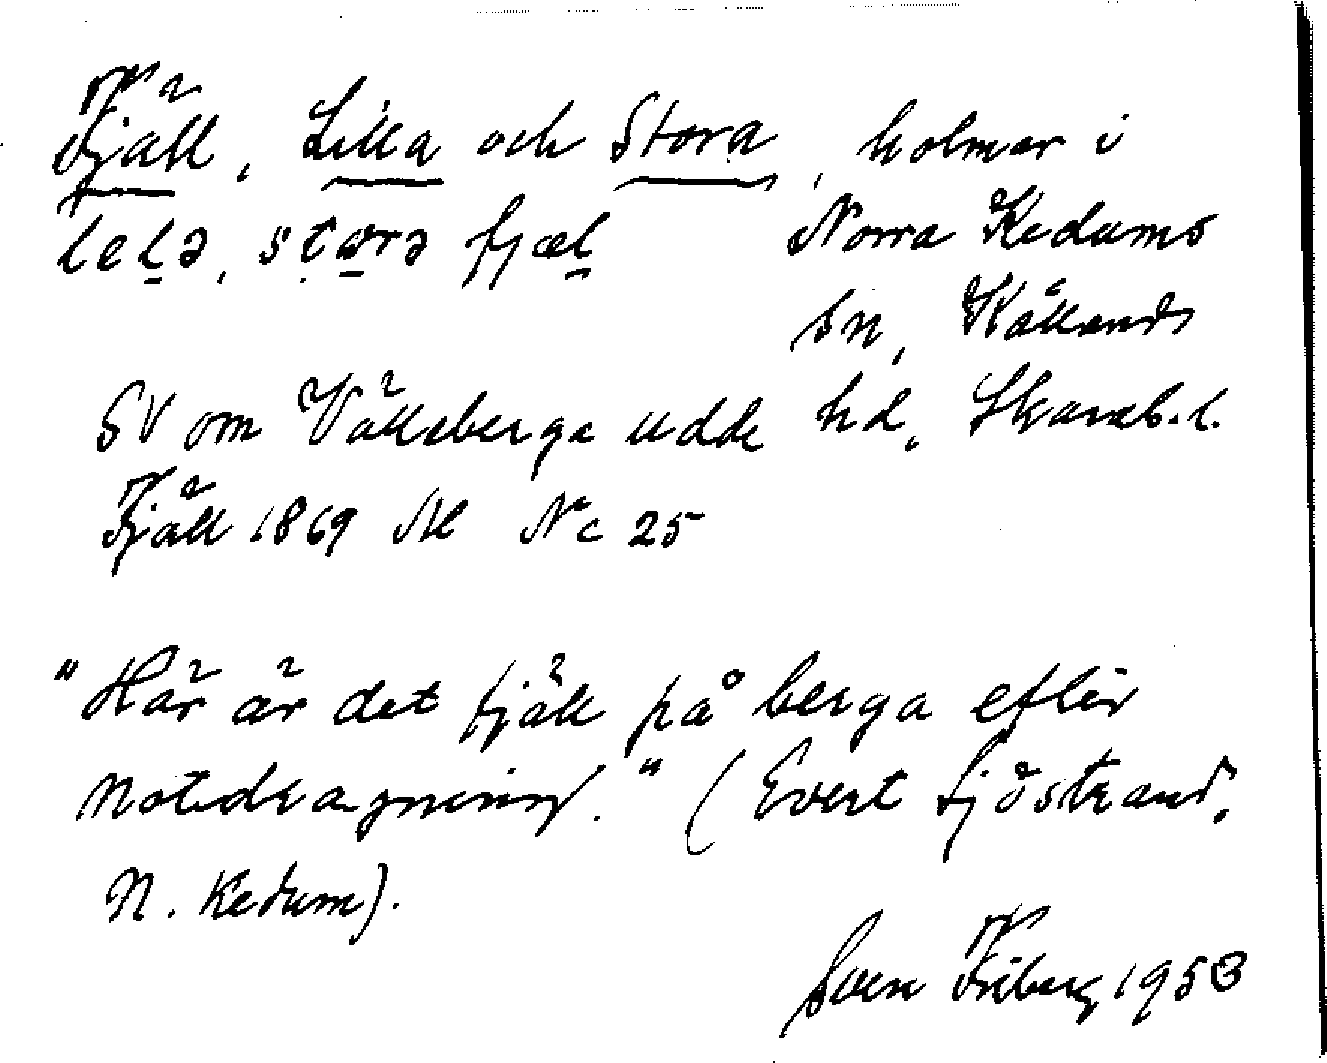 Fjäll, Lilla och Stora, holmar i
lelə, storə fjæl Norra Kedums
sn, Kållands
SV om Vällsberga udde hd, Skarab.l.
Fjäll 1869 Nl Nc 25
"Här är det fjäll på berga efter
notdragning." (Evert Sjöstrand,
N. Kedum).
Sven Friberg 1953